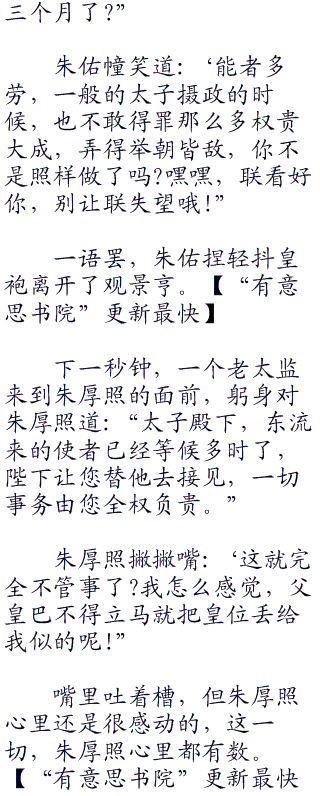 三个月了？”
朱佑幢笑道：‘能者多
劳，一般的太子摄政的时
候，也不敢得罪那么多权贵
大成，弄得举朝皆敌，你不
是照样做了吗?嘿嘿，联看好
你，别让联失望哦!”
一语罢，朱佑捏轻抖皇
袍离开了观景亨。【“有意
思书院”更新最快】
下一秒钟，一个老太监
来到朱厚照的面前，躬身对
朱厚照道：“太子殿下，东流
来的使者已经等候多时了，
陛下让您替他去接见，一切
事务由您全权负贵。”
朱厚照撇撇嘴：‘这就完
全不管事了?我怎么感觉，父
皇巴不得立马就把皇位丢给
我似的呢!”
嘴里吐着槽，但朱厚照
心里还是很感动的，这一
切，朱厚照心里都有数。
【“有意思书院”更新最快